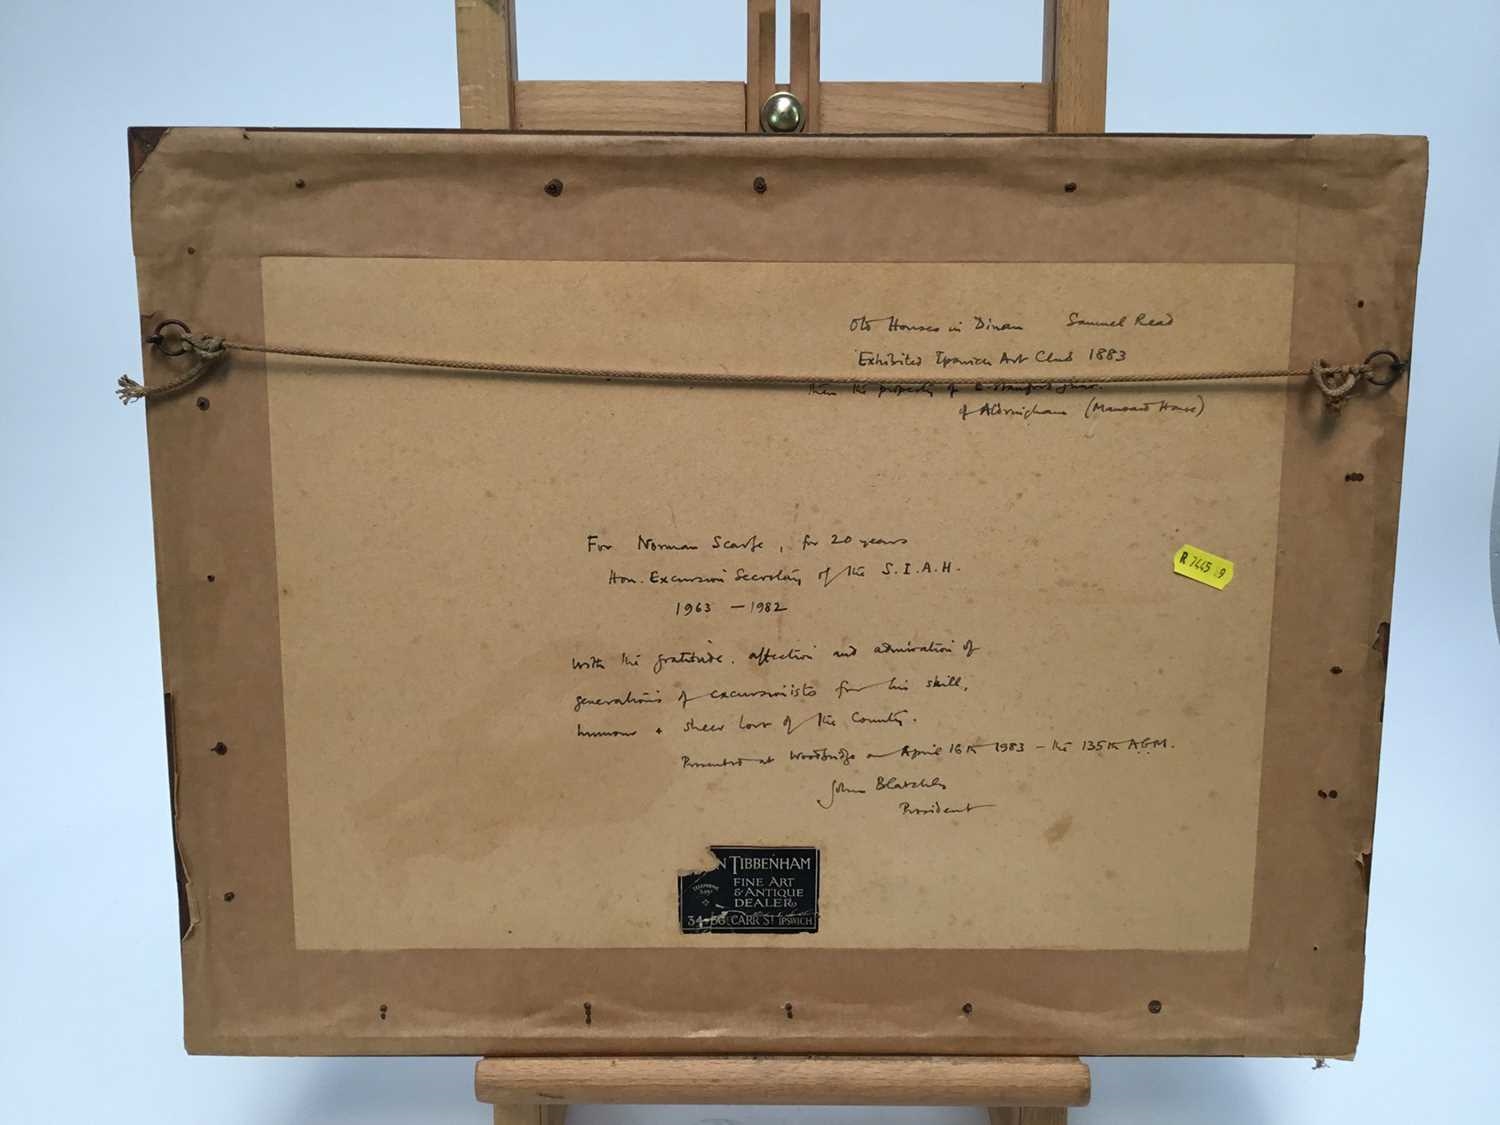 Old Houses in Dinan Samuel Read
Exhibited Ipswich Art Club 1883
then the property of
of Aldringham (Mansard House)
For Norman Scarfe, for 20 years
Hon. Excursion Secretary of the S.I.A.H.
1963 – 1982
With the gratitude, affection and admiration of
generations of excursionists for his skill,
humour + sheer love of the County.
Presented at Woodbridge on April 16th 1983 – the 135th AGM.
John Blatchly
President
R 7445 9
N TIBBENHAM
TELEPHONE
FINE ART
& ANTIQUE
DEALER
34-36 CARR ST IPSWICH